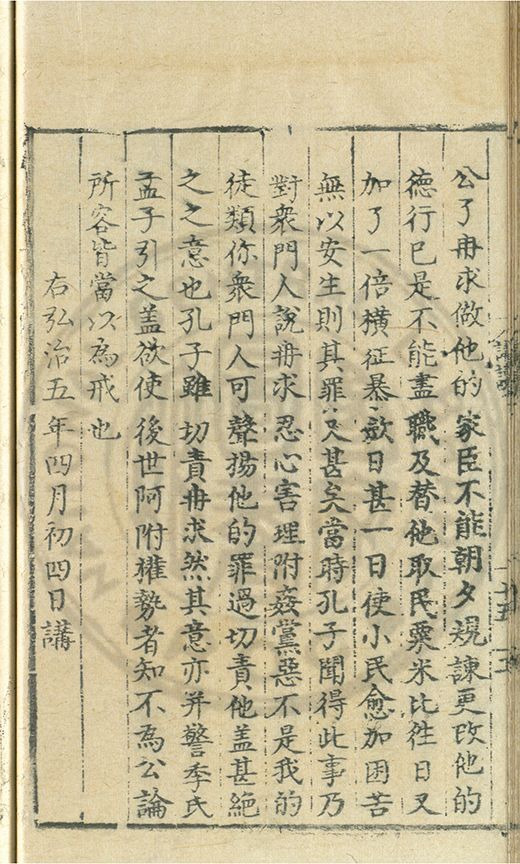 公了冉求做他的家臣不能朝夕規諫更改他的
德行已是不能盡職及替他取民粟米比徃日又
加了一倍橫征暴斂日甚一日使小民愈加困苦
無以安生則其罪又甚矣當時孔子聞得此事乃
對衆門人說冉求忍心害理附姦黨惡不是我的
徒類你衆門人可聲揚他的罪過切責他盖甚絕
之之意也孔子雖切責冉求然其意亦并警季氏
孟子引之盖欲使後世阿附權勢者知不為公論
所容皆當以為戒也
右弘治五年四月初四日講